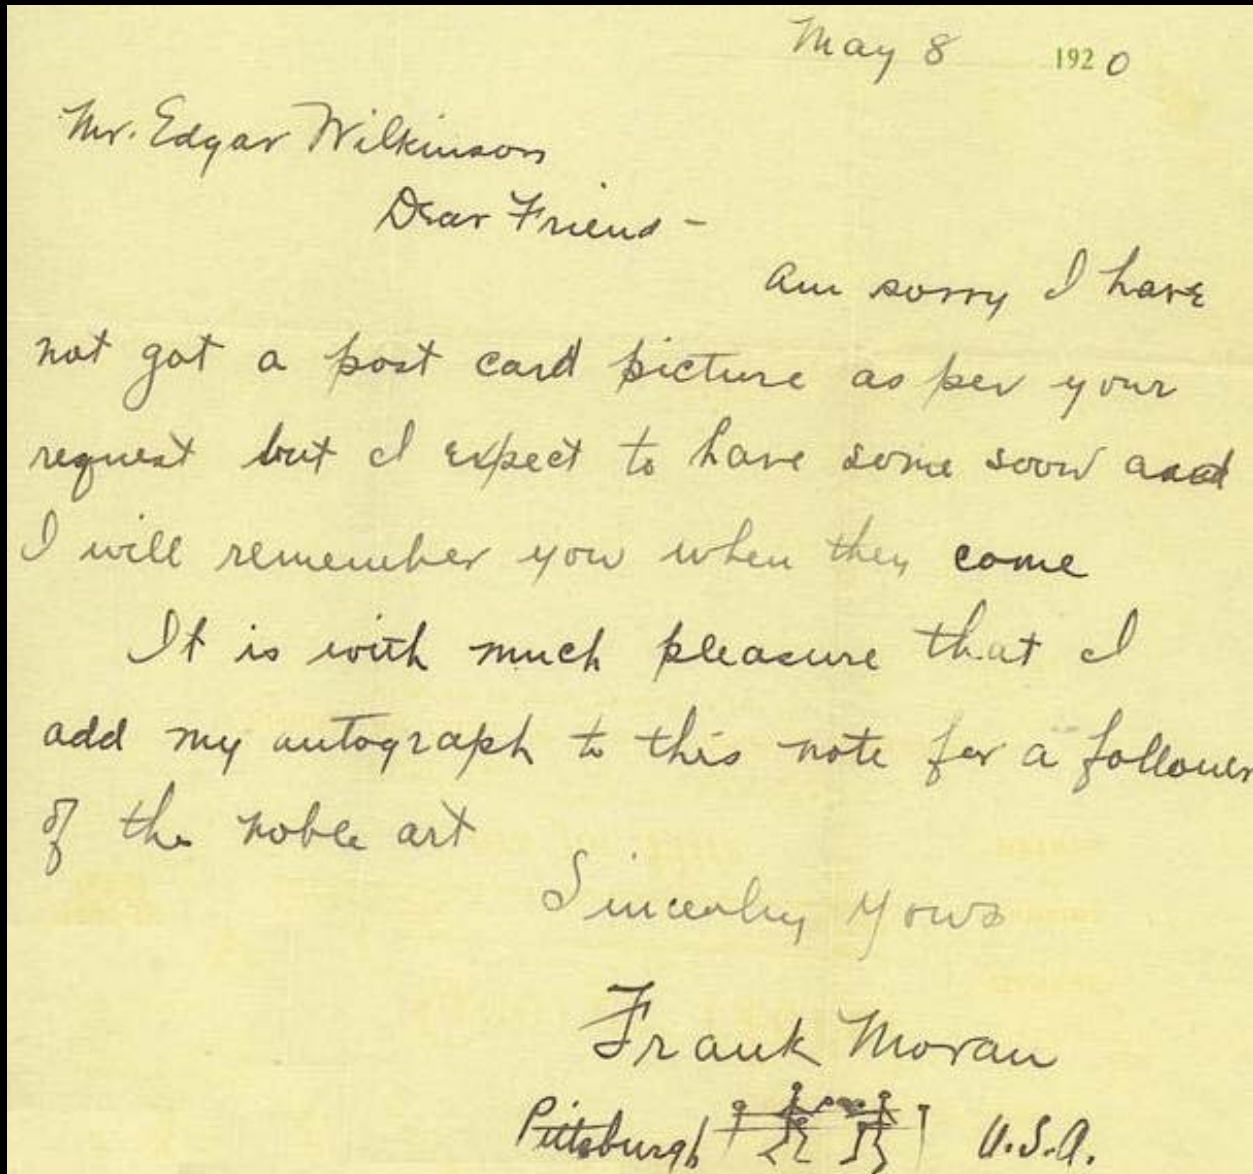 May 8 1920
Mr. Edgar Wilkinson
Dear Friend -
am sorry I have
not got a post card picture as per your
request but I expect to have some soon and
I will remember you when they come
It is with much pleasure that I
add my autograph to this note for a follower
of the noble art
Sincerely yours
Frank Moran
Pittsburgh U.S.A.